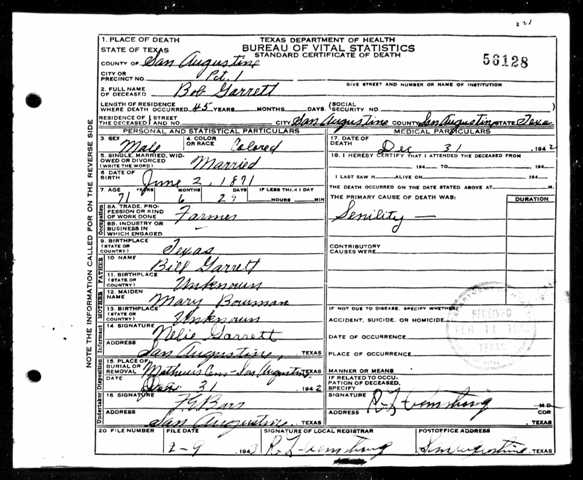 TEXAS DEPARTMENT OF HEALTH
BUREAU OF VITAL STATISTICS
STANDARD CERTIFICATE OF DEATH
56128
1. PLACE OF DEATH
STATE OF TEXAS
COUNTY OF San Augustine
CITY OR PRECINCT NO. Pct. 1
GIVE STREET AND NUMBER OR NAME OF INSTITUTION
2. FULL NAME OF DECEASED Bob Garrett
LENGTH OF RESIDENCE WHERE DEATH OCCURRED 45 YEARS MONTHS DAYS (SOCIAL SECURITY NO.
RESIDENCE OF THE DECEASED (STREET AND NO. CITY San Augustine COUNTY San Augustine STATE Texas
PERSONAL AND STATISTICAL PARTICULARS
3. SEX Male
4. COLOR OR RACE Colored
5. SINGLE, MARRIED, WIDOWED OR DIVORCED (WRITE THE WORD) Married
6. DATE OF BIRTH June 2, 1871
7. AGE YEARS MONTHS DAYS IF LESS THAN 1 DAY
71 6 29 HOURS MIN
8A. TRADE, PROFESSION OR KIND OF WORK DONE Farmer
8B. INDUSTRY OR BUSINESS IN WHICH ENGAGED -
9. BIRTHPLACE (STATE OR COUNTRY) Texas
10. NAME Bill Garrett
11. BIRTHPLACE (STATE OR COUNTRY) Unknown
12. MAIDEN NAME Mary Bowman
13. BIRTHPLACE (STATE OR COUNTRY) Unknown
14. SIGNATURE Garrett
ADDRESS San Augustine, TEXAS
15. PLACE OF BURIAL OR REMOVAL Cem - San Augustine TEXAS
DATE 31 1942
16. SIGNATURE
ADDRESS San Augustine TEXAS
MEDICAL PARTICULARS
17. DATE OF DEATH Dec 31 1942
18. I HEREBY CERTIFY THAT I ATTENDED THE DECEASED FROM
194 TO 194
I LAST SAW H ALIVE ON 194
THE DEATH OCCURRED ON THE DATE STATED ABOVE AT M.
THE PRIMARY CAUSE OF DEATH WAS: DURATION
Senility —
CONTRIBUTORY CAUSES WERE:
IF NOT DUE TO DISEASE, SPECIFY WHETHER:
ACCIDENT, SUICIDE, OR HOMICIDE
DATE OF OCCURRENCE
PLACE OF OCCURRENCE
MANNER OR MEANS
IF RELATED TO OCCUPATION OF DECEASED, SPECIFY
SIGNATURE M.D.
ADDRESS COR TEXAS
20. FILE NUMBER FILE DATE SIGNATURE OF LOCAL REGISTRAR POSTOFFICE ADDRESS
2-9 194 TEXAS
NOTE THE INFORMATION CALLED FOR ON THE REVERSE SIDE